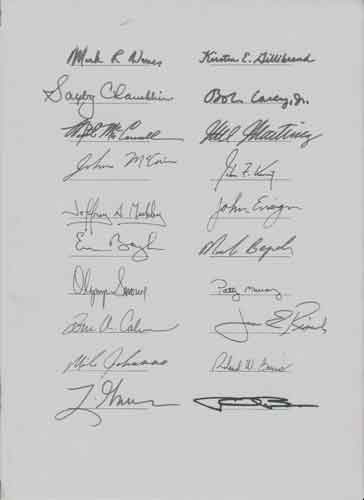 Mark R Warner Kirsten E. Gillibrand
Saxby Chambliss Bob Casey, Jr.
Mitch McConnell Mel Martinez
John McCain John F. Kerry
Jeffrey A. Merkley John Ensign
Evan Bayh Mark Begich
Olympia Snowe Patty Murray
A. Coburn James E Risch
Mike Johanns Roland W. Burris
L. Graham